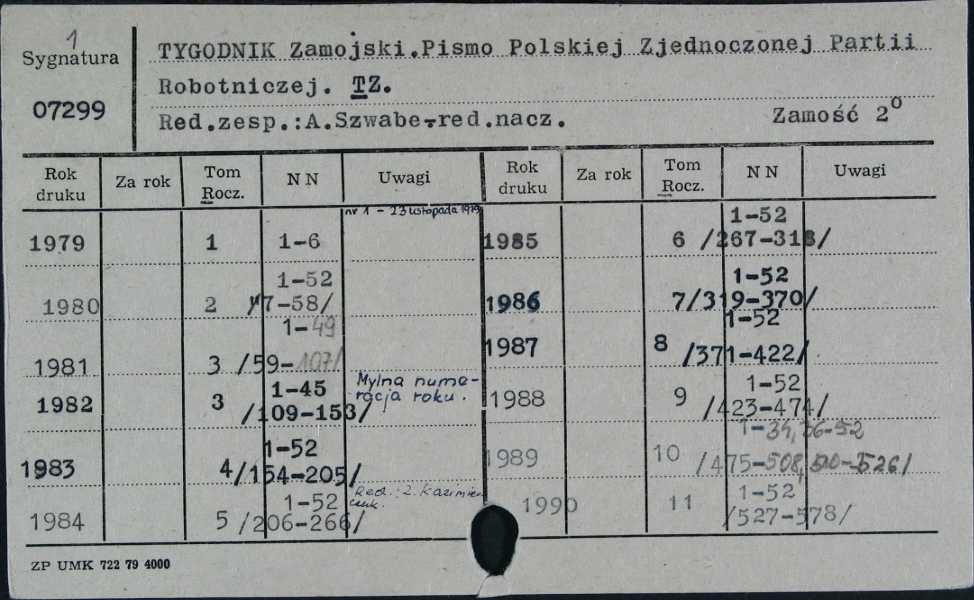 1
Sygnatura
07299
TYGODNIK Zamojski.Pismo Polskiej Zjednoczonej Partii
Robotniczej. TZ.
Red.zesp.:A.Szwabe-red.nacz. Zamość 2°
Rok druku Za rok Tom Rocz. NN Uwagi Rok druku Za rok Tom Rocz. NN Uwagi
nr 1 - 23 listopada 1979
1979 1 1-6
1980 2 1-52 /7-58/
1981 3 1-49 /59-107/
1982 3 1-45 /109-153/ Mylna nume-
racja roku.
1983 4 1-52 /154-205/
1984 5 1-52 /206-266/ Red.: Z. Kazimier
czuk.
1985 6 1-52 /267-318/
1986 7 1-52 /319-370/
1987 8 1-52 /371-422/
1988 9 1-52 /423-474/
1989 10 1-34, 36-52 /475-508, 510-526/
1990 11 1-52 /527-578/
ZP UMK 722 79 4000